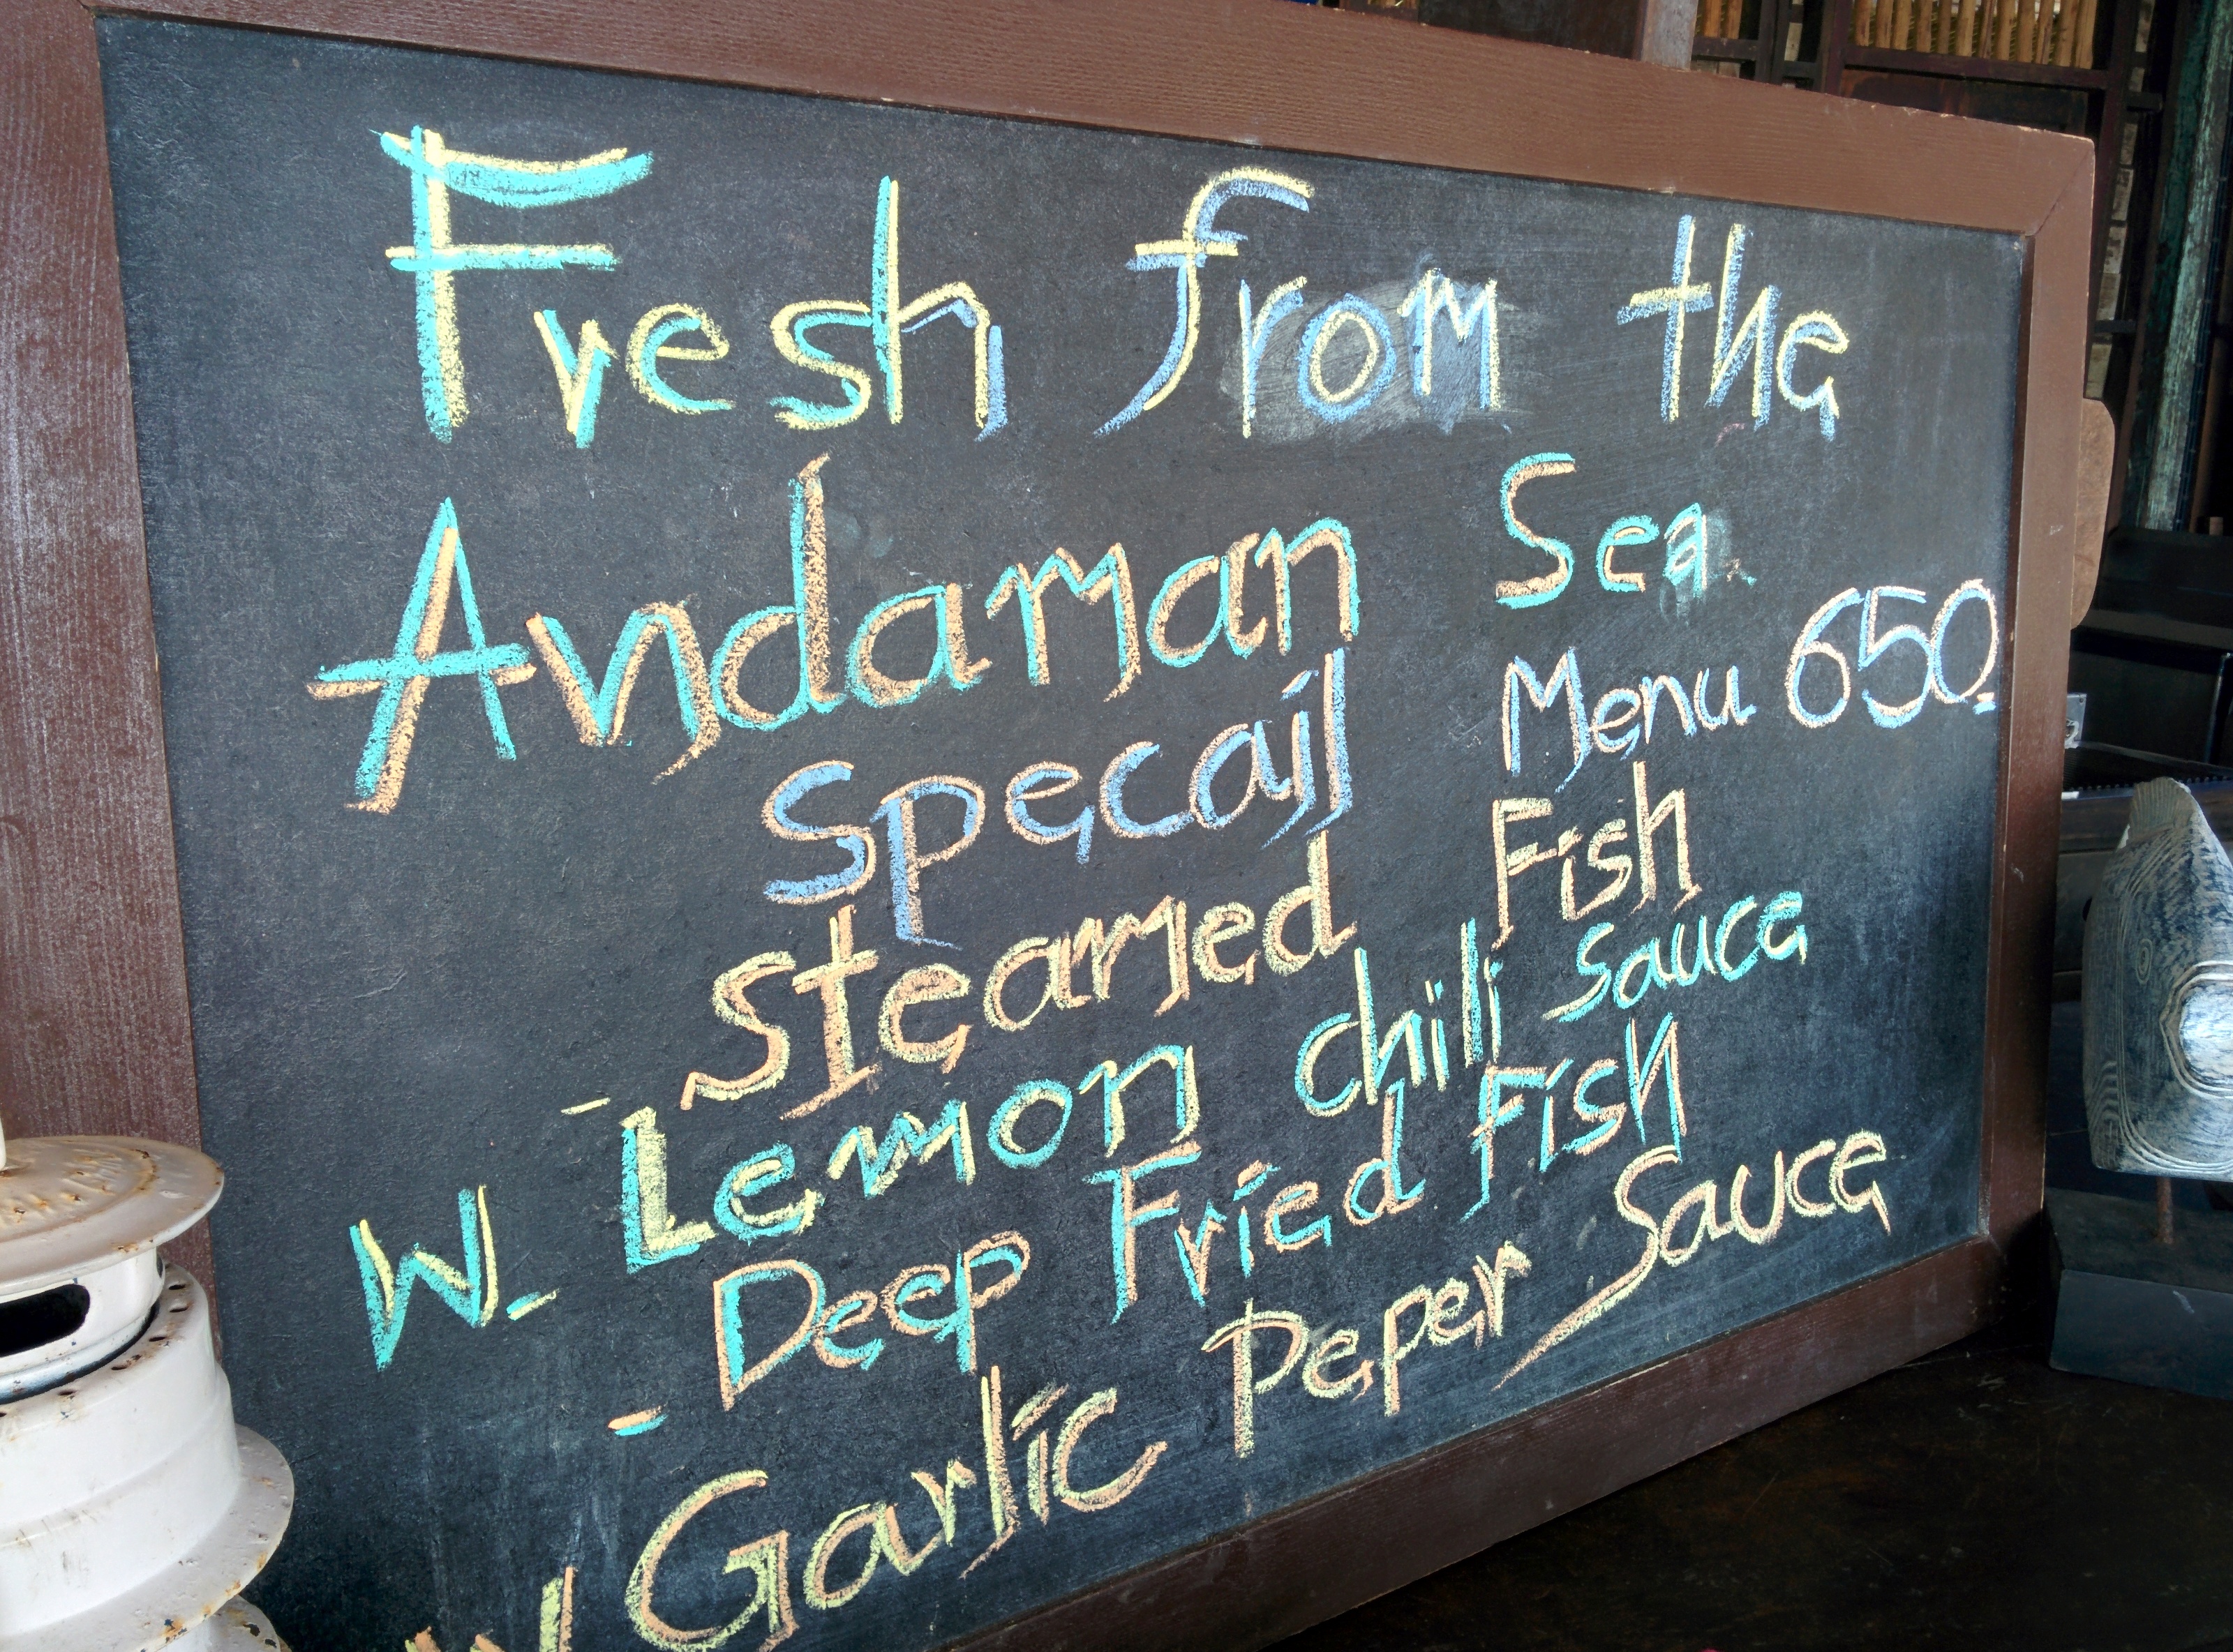 Fresh from the
Andaman Sea
Specail Menu 650.-
- Steamed Fish
W- Lemon chili Sauce
- Deep Fried Fish
W Garlic Peper Sauce